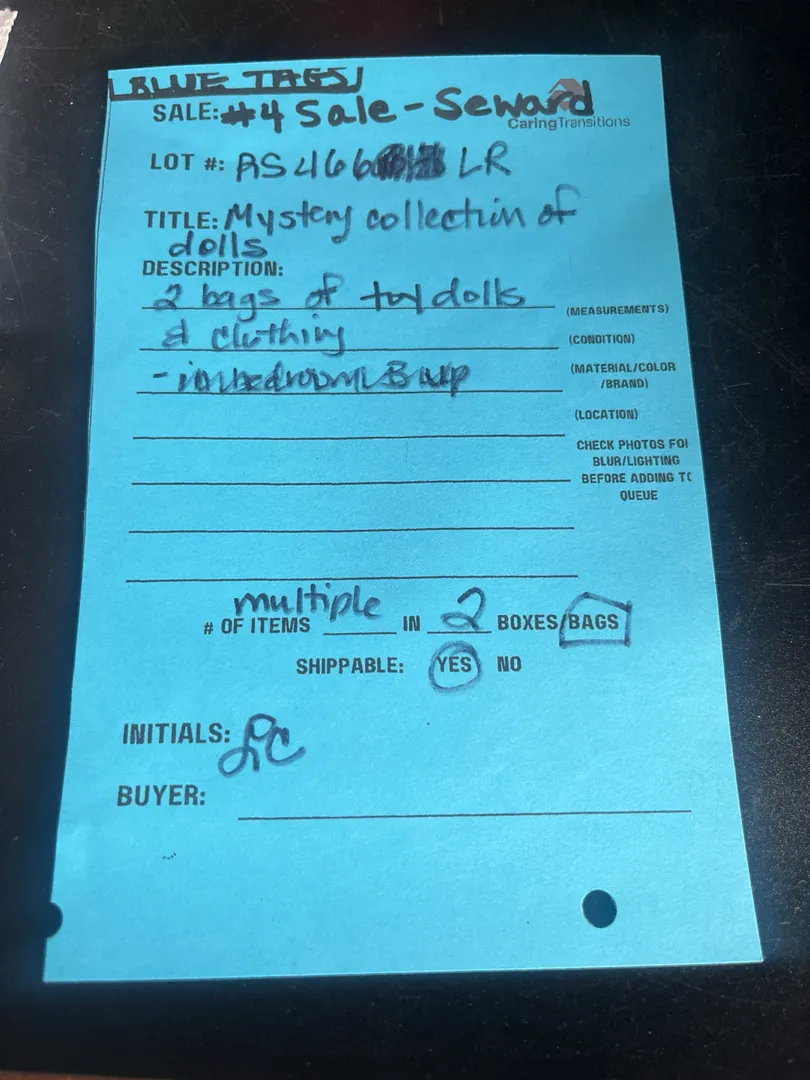 BLUE TAGS
SALE: #4 Sale - Seward
CaringTransitions
LOT #: AS466 LR
TITLE: Mystery collection of
dolls
DESCRIPTION:
2 bags of toy dolls
(MEASUREMENTS)
& clothing
(CONDITION)
- in bedroom B
(MATERIAL/COLOR
/BRAND)
(LOCATION)
CHECK PHOTOS FOR
BLUR/LIGHTING
BEFORE ADDING TO
QUEUE
# OF ITEMS multiple IN 2 BOXES/BAGS
SHIPPABLE: YES NO
INITIALS:
BUYER: